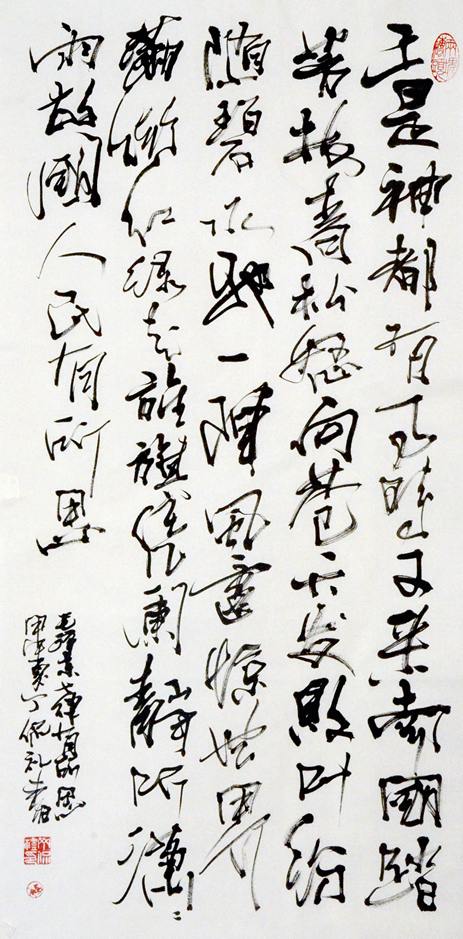 正是神都有事時又来南國踏
芳枝青松怒向苍天发败叶纷
随碧水驰一陣風雷惊世界
满街红绿走旌旗凭闌静听瀟〻
雨故國人民有所思
毛泽东七律有所思